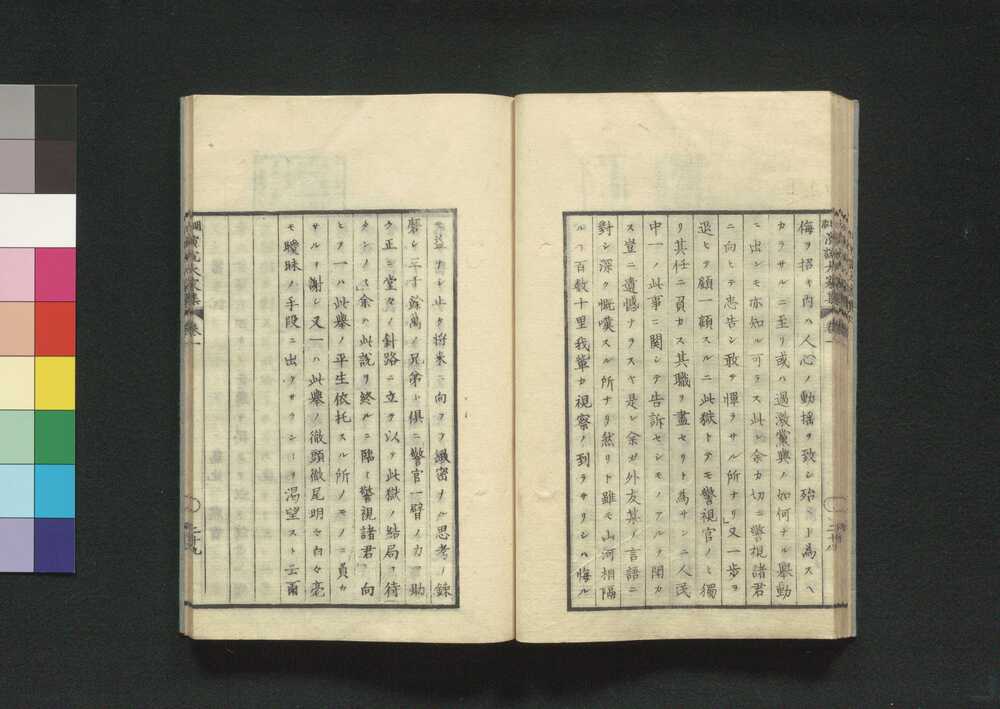 侮ヲ招キ内ハ人心ノ動揺ヲ致シ殆ント為スヘ
カラサルニ至リ或ハ過激黨與ノ如何ナル擧動
ニ出シモ亦知ル可ラス此レ余カ切ニ警視諸君
ニ向ヒテ忠告シ敢テ憚ラサル所ナリ」又一歩ヲ
退ヒテ顧一顧スルニ此獄トテモ警視官ノミ獨
リ其任ニ負カス其職ヲ盡セリト為サンニ人民
中一ノ此事ニ関シテ告訴セシモノアルヲ聞カ
ス豈ニ遺憾ナラスヤ是レ余カ外友某ノ言語ニ
對シ深ク慨嘆スル所ナリ然リト雖モ山河相隔
ルヿ百数十里我輩カ視察ノ到ラサリシハ悔ル
モ益ナシ此ク将来ニ向ヲフ緻密ナル思考ノ録
磨シ三千餘萬ノ兄弟ト倶ニ警官一臂ノ力ヲ助
ケ正々堂々ノ針路ニ立テ以テ此獄ノ結局ヲ待
タンノミ」余ハ此説ヲ終ルニ臨ミ警視諸君ニ向
ヒテ一ハ此擧ノ平生依托スル所ノモノニ負カ
サルヲ謝シ又一ハ此擧ノ徹頭徹尾明々白々毫
モ曖昧ノ手段ニ出テサランヿヲ渇望スト云爾
卷一